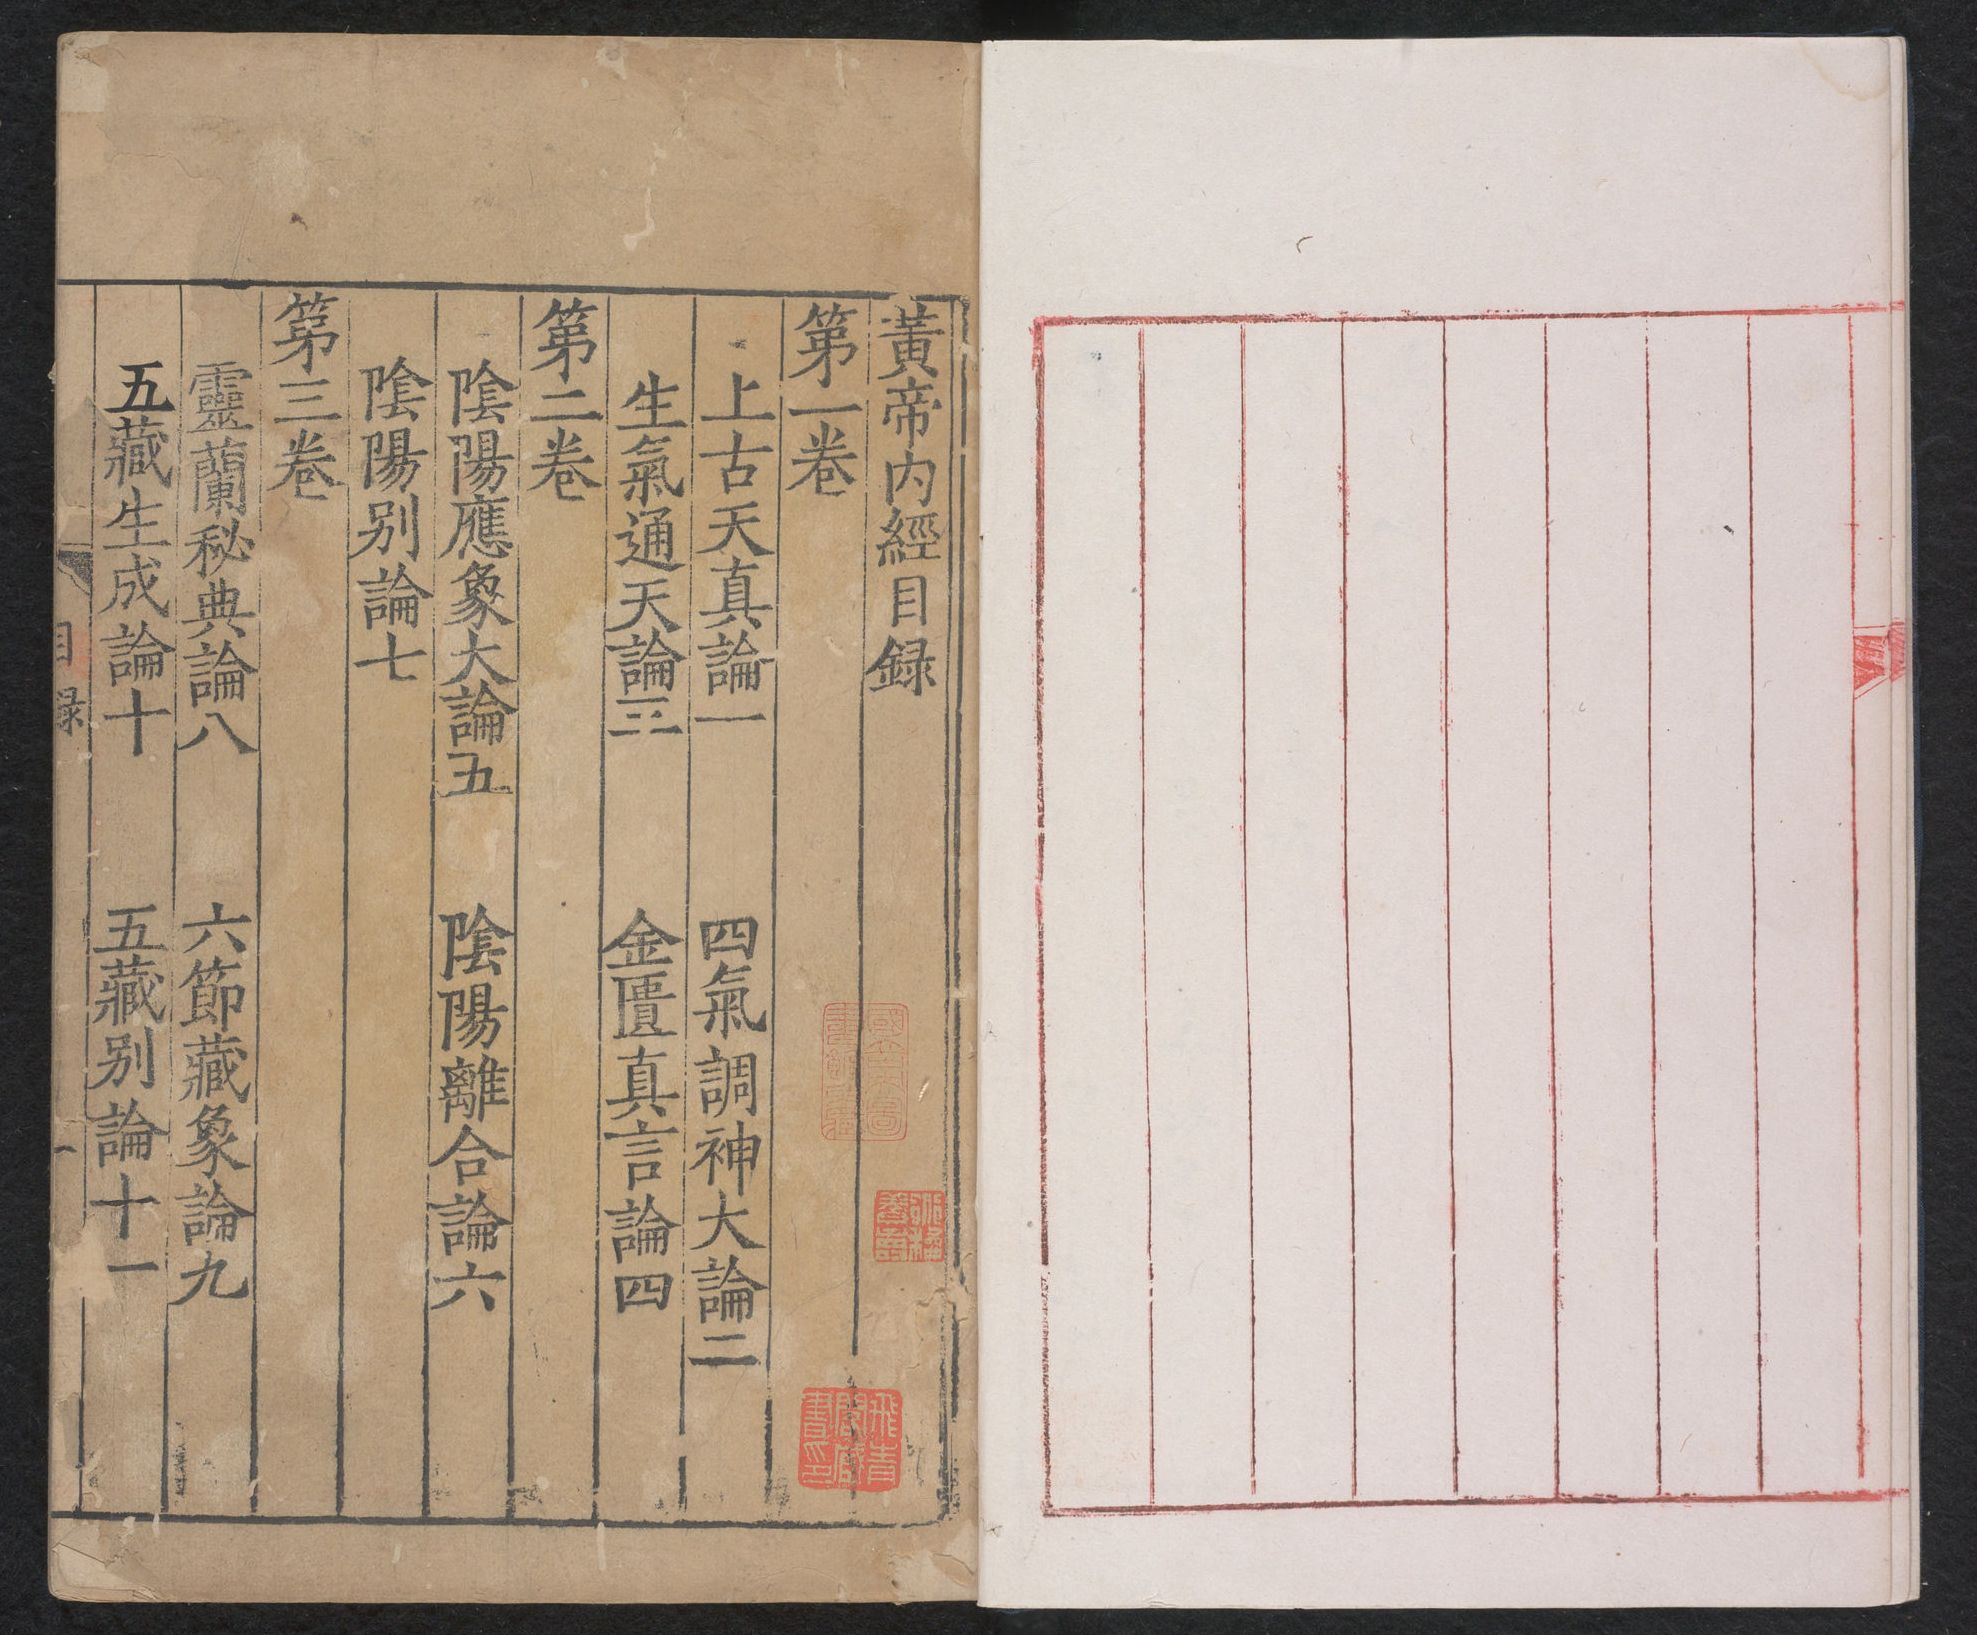 黃帝内經目録
第一卷
上古天真論一　四氣調神大論二
生氣通天論三　金匱真言論四
第二卷
陰陽應象大論五　陰陽離合論六
陰陽別論七
第三卷
靈蘭秘典論八　六節藏象論九
五藏生成論十　五藏別論十一
目録　一
飛青閣藏書印